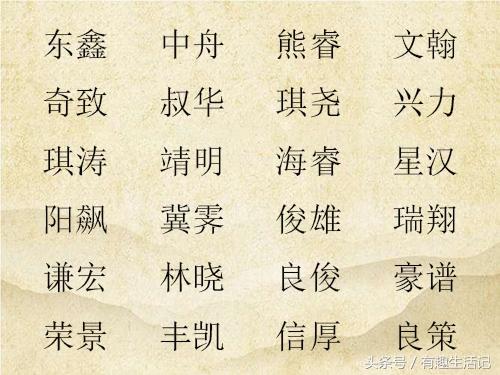 东鑫 中舟 熊睿 文翰
奇致 叔华 琪尧 兴力
琪涛 靖明 海睿 星汉
阳飙 冀霁 俊雄 瑞翔
谦宏 林晓 良俊 豪谱
荣景 丰凯 信厚 良策
头条号 / 有趣生活记